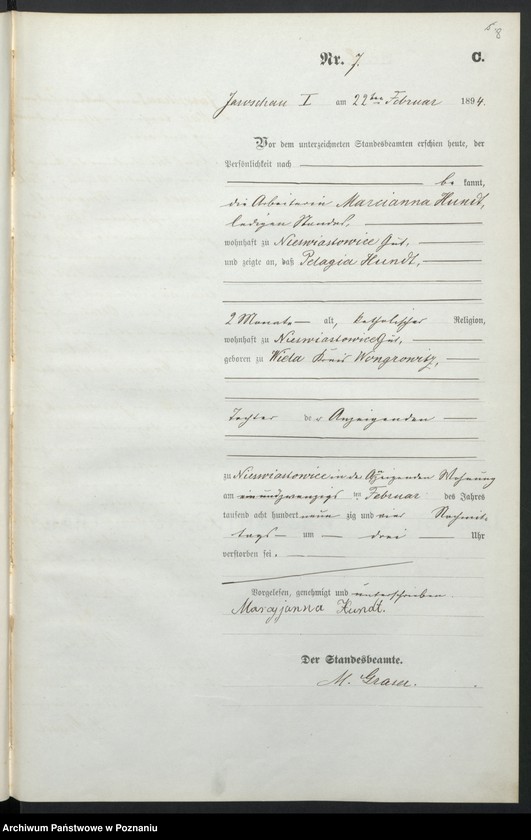 8
Nr. 7. C.
Jaroschau I am 22ten Februar 1894.
Vor dem unterzeichneten Standesbeamten erschien heute, der
Persönlichkeit nach
be kannt,
die Arbeiterin Marcianna Hundt,
ledigen Standes,
wohnhaft zu Nieswiastowice Gut,
und zeigte an, daß Pelagia Hundt,
2 Monate alt, katholischer Religion,
wohnhaft zu Nieswiastowice Gut,
geboren zu Wiela Kreis Wongrowitz,
Tochter der Anzeigenden
zu Nieswiastowice in der Anzeigenden Wohnung
am ein und zwanzigs ten Februar des Jahres
tausend acht hundert neun zig und vier Nachmit,
tags um drei Uhr
verstorben sei.
Vorgelesen, genehmigt und unterschrieben
Marcyjanna Hundt.
Der Standesbeamte.
M. Graser.
Archiwum Państwowe w Poznaniu